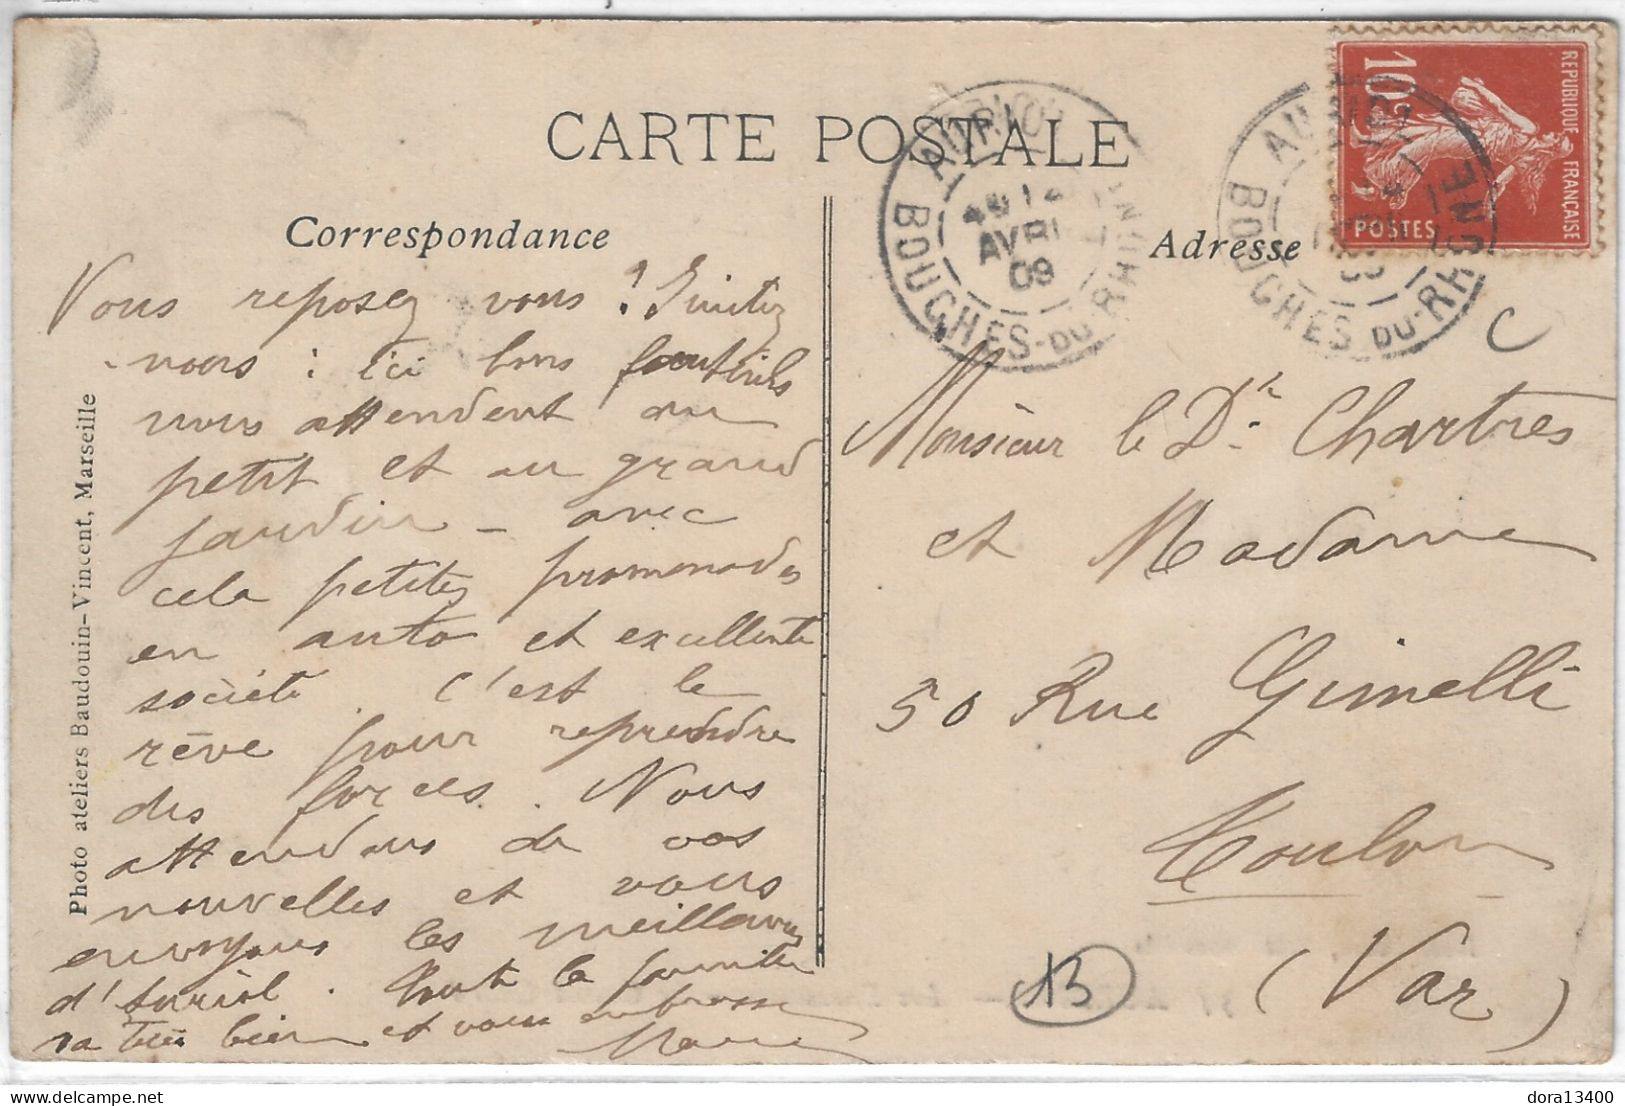 CARTE POSTALE
Correspondance
Adresse
REPUBLIQUE FRANÇAISE
10c
POSTES
AURIOL
4 12
AVRIL
09
BOUCHES-DU-RHÔNE
AURIOL
BOUCHES-DU-RHÔNE
Vous reposez vous ? Imitez
nous : ici bons fauteuils
nous attendent au
petit et au grand
jardin - avec
cela petites promenades
en auto et excellente
société. C'est le
rêve pour reprendre
des forces. Nous
attendons de vos
nouvelles et vous
envoyons les meilleures
d'Auriol. Toute la famille
va très bien et vous embrasse
Marie
Monsieur le Dr. Chartres
et Madame
50 Rue Gimelli
Toulon
(Var)
C
13
Photo ateliers Baudouin-Vincent, Marseille
dora13400